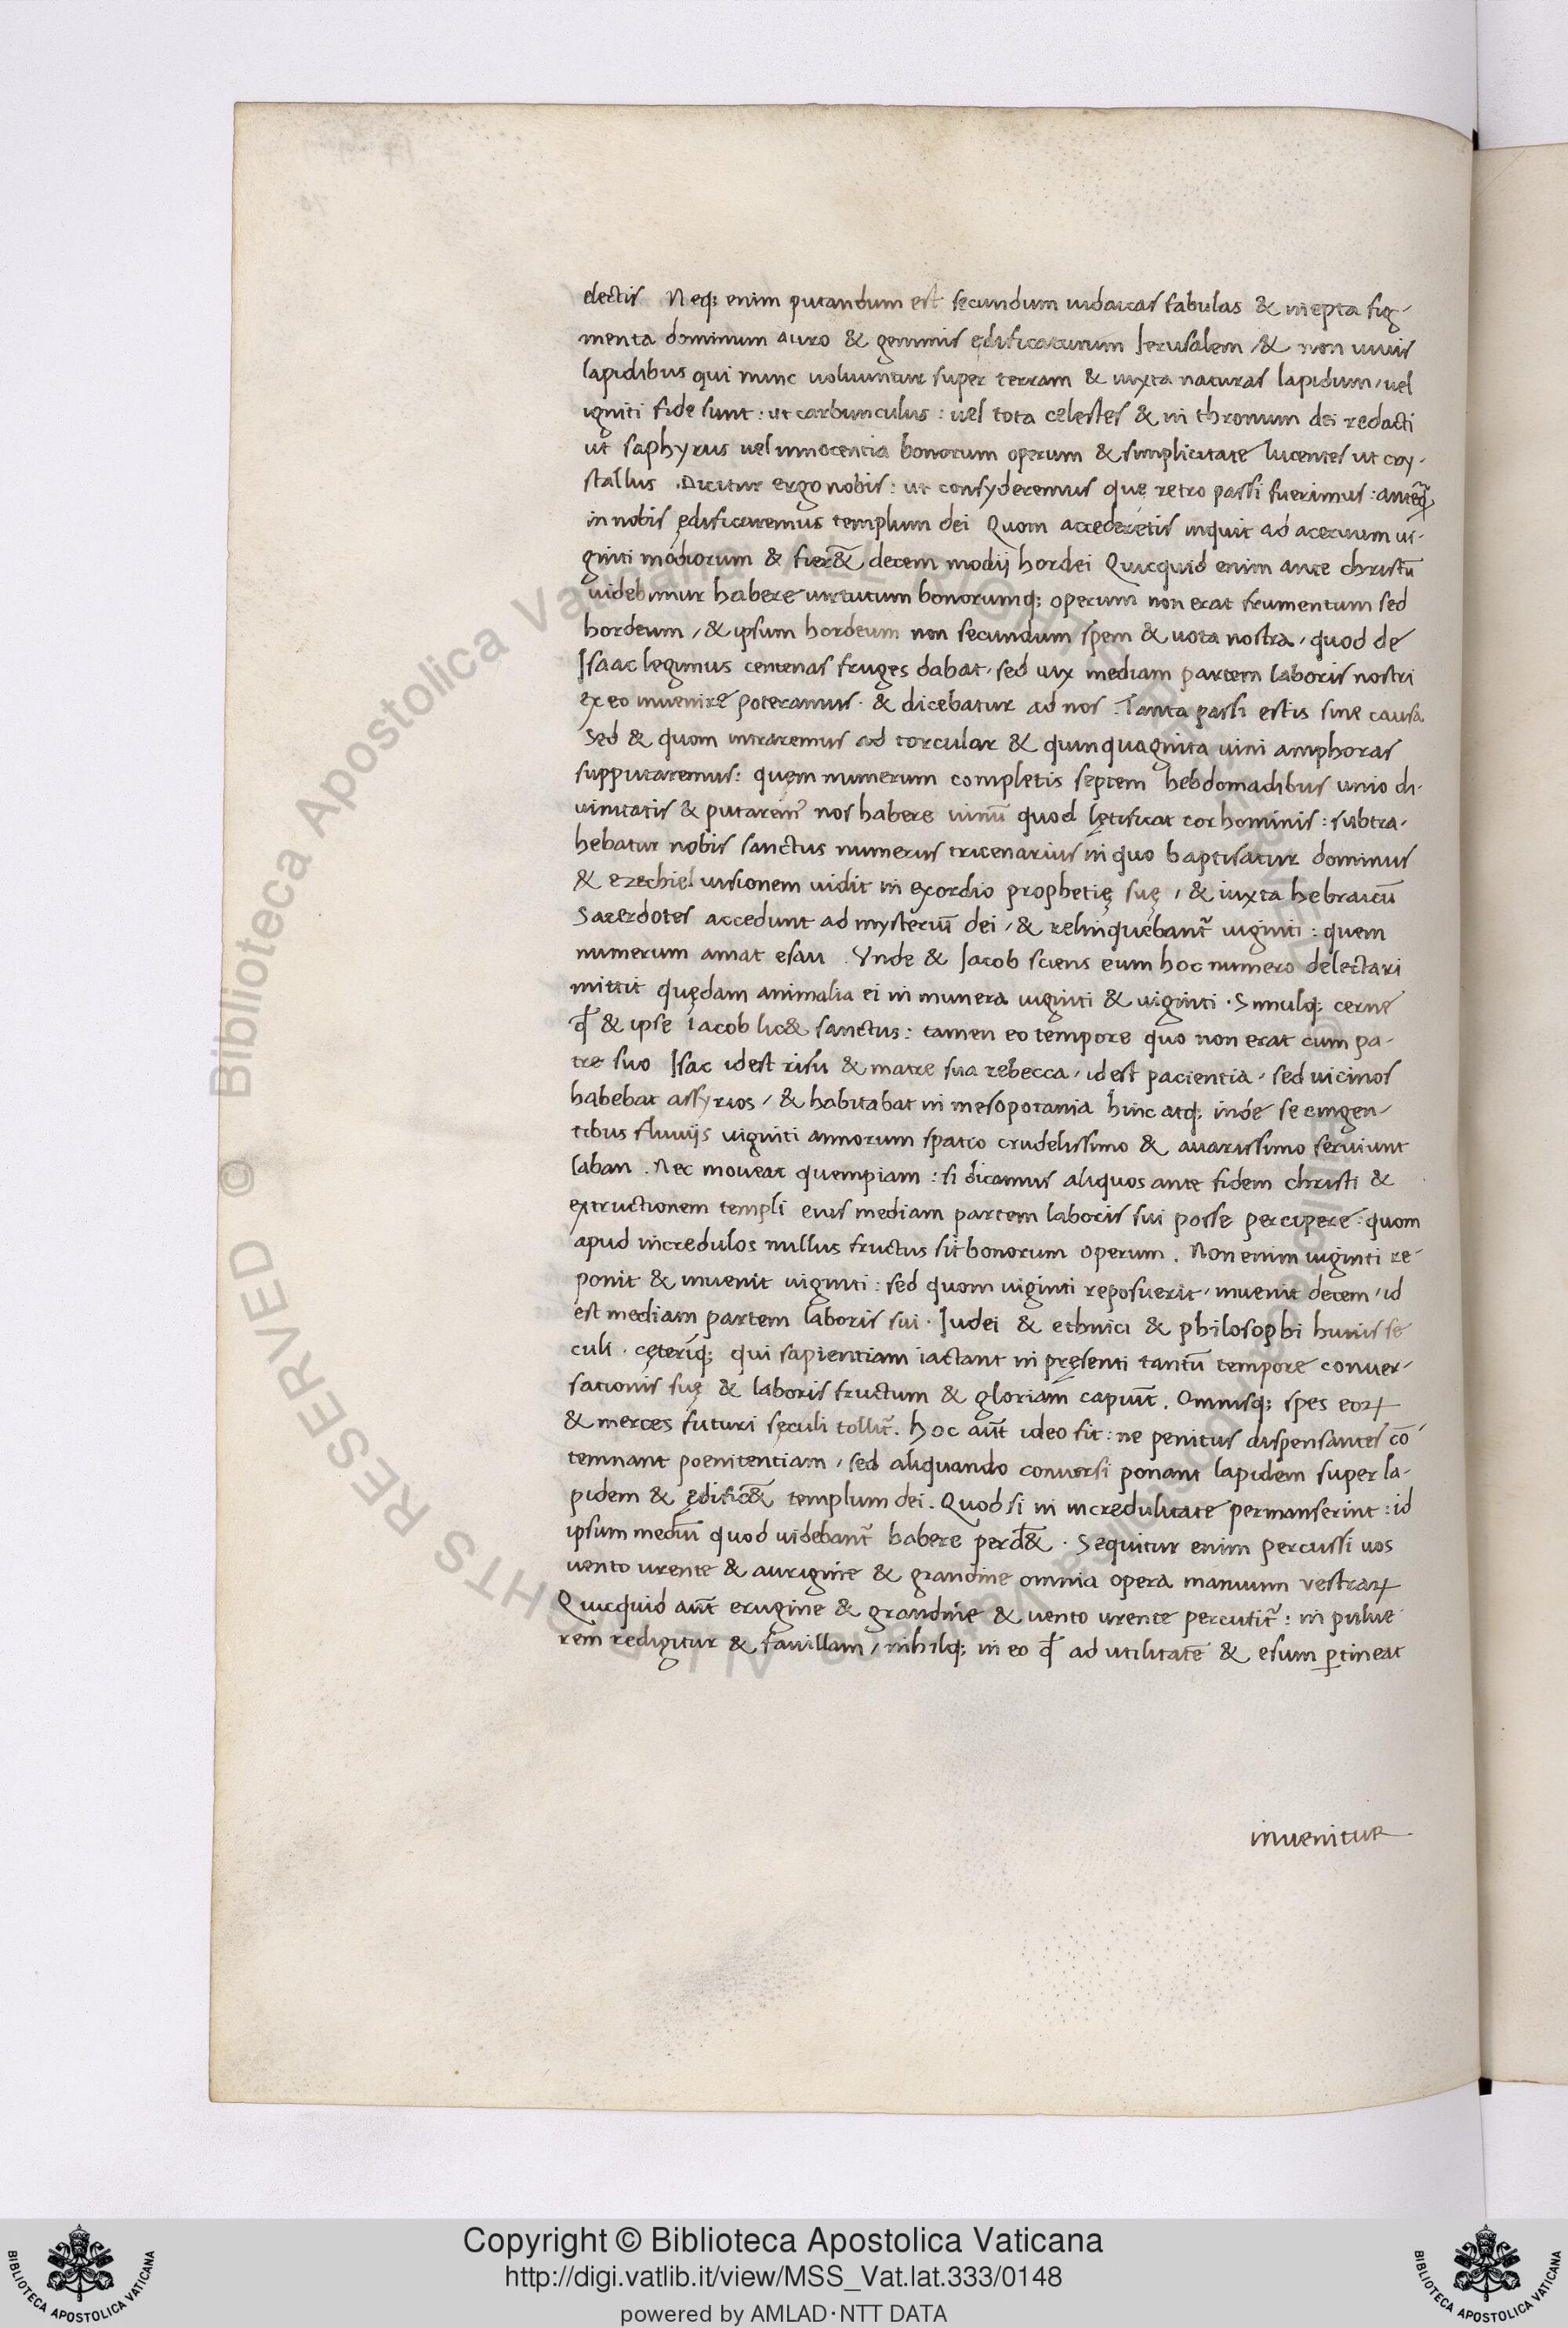 electis Neq; enim putandum est secundum iudaicas fabulas & inepta fig-
menta dominum auro & gemmis ędificaturum Jerusalem / & non uiuis
lapidibus qui nunc uoluuntur super terram & iuxta naturas lapidum / uel
igniti fide sunt : ut carbunculus : uel tota celestes & in thronum dei redacti
ut saphyrus uel innocentia bonorum operum & simplicitate lucentes ut cry-
stallus . Dicitur ergo nobis : ut consyderemus quę retro passi fuerimus : anteq̃
in nobis ędificaremus templum dei Quom accederetis inquit ad aceruum ui-
ginti modiorum & fier&̃ decem modij hordei Quicquid enim ante christũ
uidebimur habere uirtutum bonorumq; operum non erat frumentum sed
hordeum / & ipsum hordeum non secundum spem & uota nostra / quod de
Isaac legimus centenas fruges dabat / sed uix mediam partem laboris nostri
ex eo inuenire poteramus . & dicebatur ad nos . Tanta passi estis sine causa.
Sed & quom intraremus ad torcular & quinquaginta uini amphoras
supputaremus : quem numerum completis septem hebdomadibus unio di-
uinitatis & putarem᷒ nos habere uinũ quod lętificat cor hominis : subtra-
hebatur nobis sanctus numerus tricenarius in quo baptisatur dominus
& ezechiel uisionem uidit in exordio prophetię suę / & iuxta hebraicũ
Sacerdotes accedunt ad mysteriũ dei / & relinquebant̃ uiginti : quem
numerum amat esau . Vnde & Jacob sciens eum hoc numero delectari
mittit quędam animalia ei in munera uiginti & uiginti . Simulq; cerne
qđ & ipse iacob lic& sanctus : tamen eo tempore quo non erat cum pa-
tre suo Isac id est risu & matre sua rebecca / id est pacientia / sed uicinos
habebat assyrios / & habitabat in mesopotania hinc atq; inde se cingen-
tibus fluuijs uiginti annorum spatio crudelissimo & auarissimo seruiunt
laban . Nec moueat quempiam : si dicamus aliquos ante fidem christi &
extructionem templi eius mediam partem laboris sui posse percipere : quom
apud incredulos nullus fructus sit bonorum operum . Non enim uiginti re-
ponit & inuenit uiginti : sed quom uiginti reposuerit / inuenit decem / id
est mediam partem laboris sui . Judei & ethnici & philosophi huius se-
culi . cęteriq; qui sapientiam iactant in pręsenti tantũ tempore conuer-
sationis suę & laboris fructum & gloriam capiũt . Omnisq; spes eoꝝ
& merces futuri sęculi tollit̃ . hoc aũt ideo fit : ne penitus dispensantes cõ-
temnant poenitentiam / sed aliquando conuersi ponant lapidem super la-
pidem & ędific&̃ templum dei . Quod si in incredulitate permanserint : id
ipsum mediũ quod uidebant̃ habere perd&̃ . Sequitur enim percussi uos
uento urente & aurigine & grandine omnia opera manuum vestraꝝ
Quicquid aũt erugine & grandine & uento urente percutit̃ : in pulue-
rem redigitur & fauillam / nihilq; in eo qđ ad utilitatẽ & esum ꝑtineat
inuenitur
Copyright © Biblioteca Apostolica Vaticana
http://digi.vatlib.it/view/MSS_Vat.lat.333/0148
powered by AMLAD·NTT DATA
BIBLIOTECA APOSTOLICA VATICANA
BIBLIOTECA APOSTOLICA VATICANA